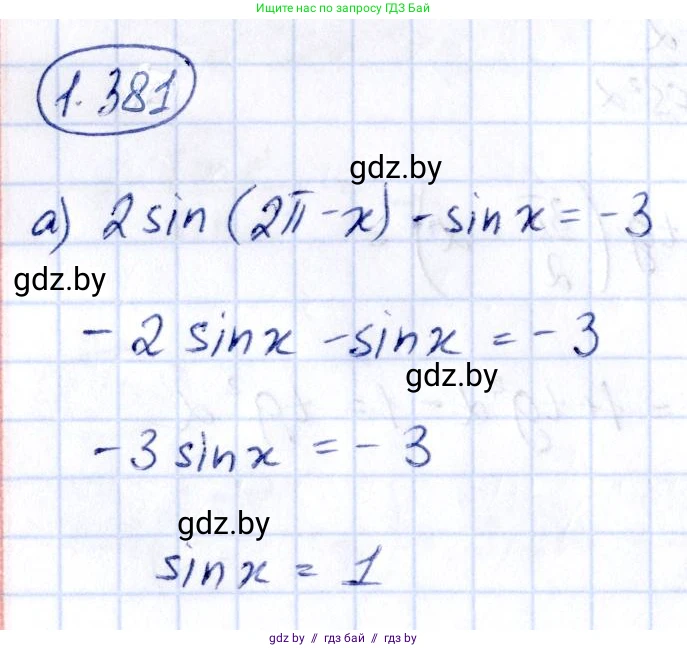 Ищите нас по запросу ГДЗ Бай
1.381
gdz.by
а) 2 sin (2π - x) - sin x = -3
gdz.by
- 2 sin x - sin x = - 3
gdz.by
- 3 sin x = - 3
gdz.by
sin x = 1
gdz.by // гдз бай // гдз by